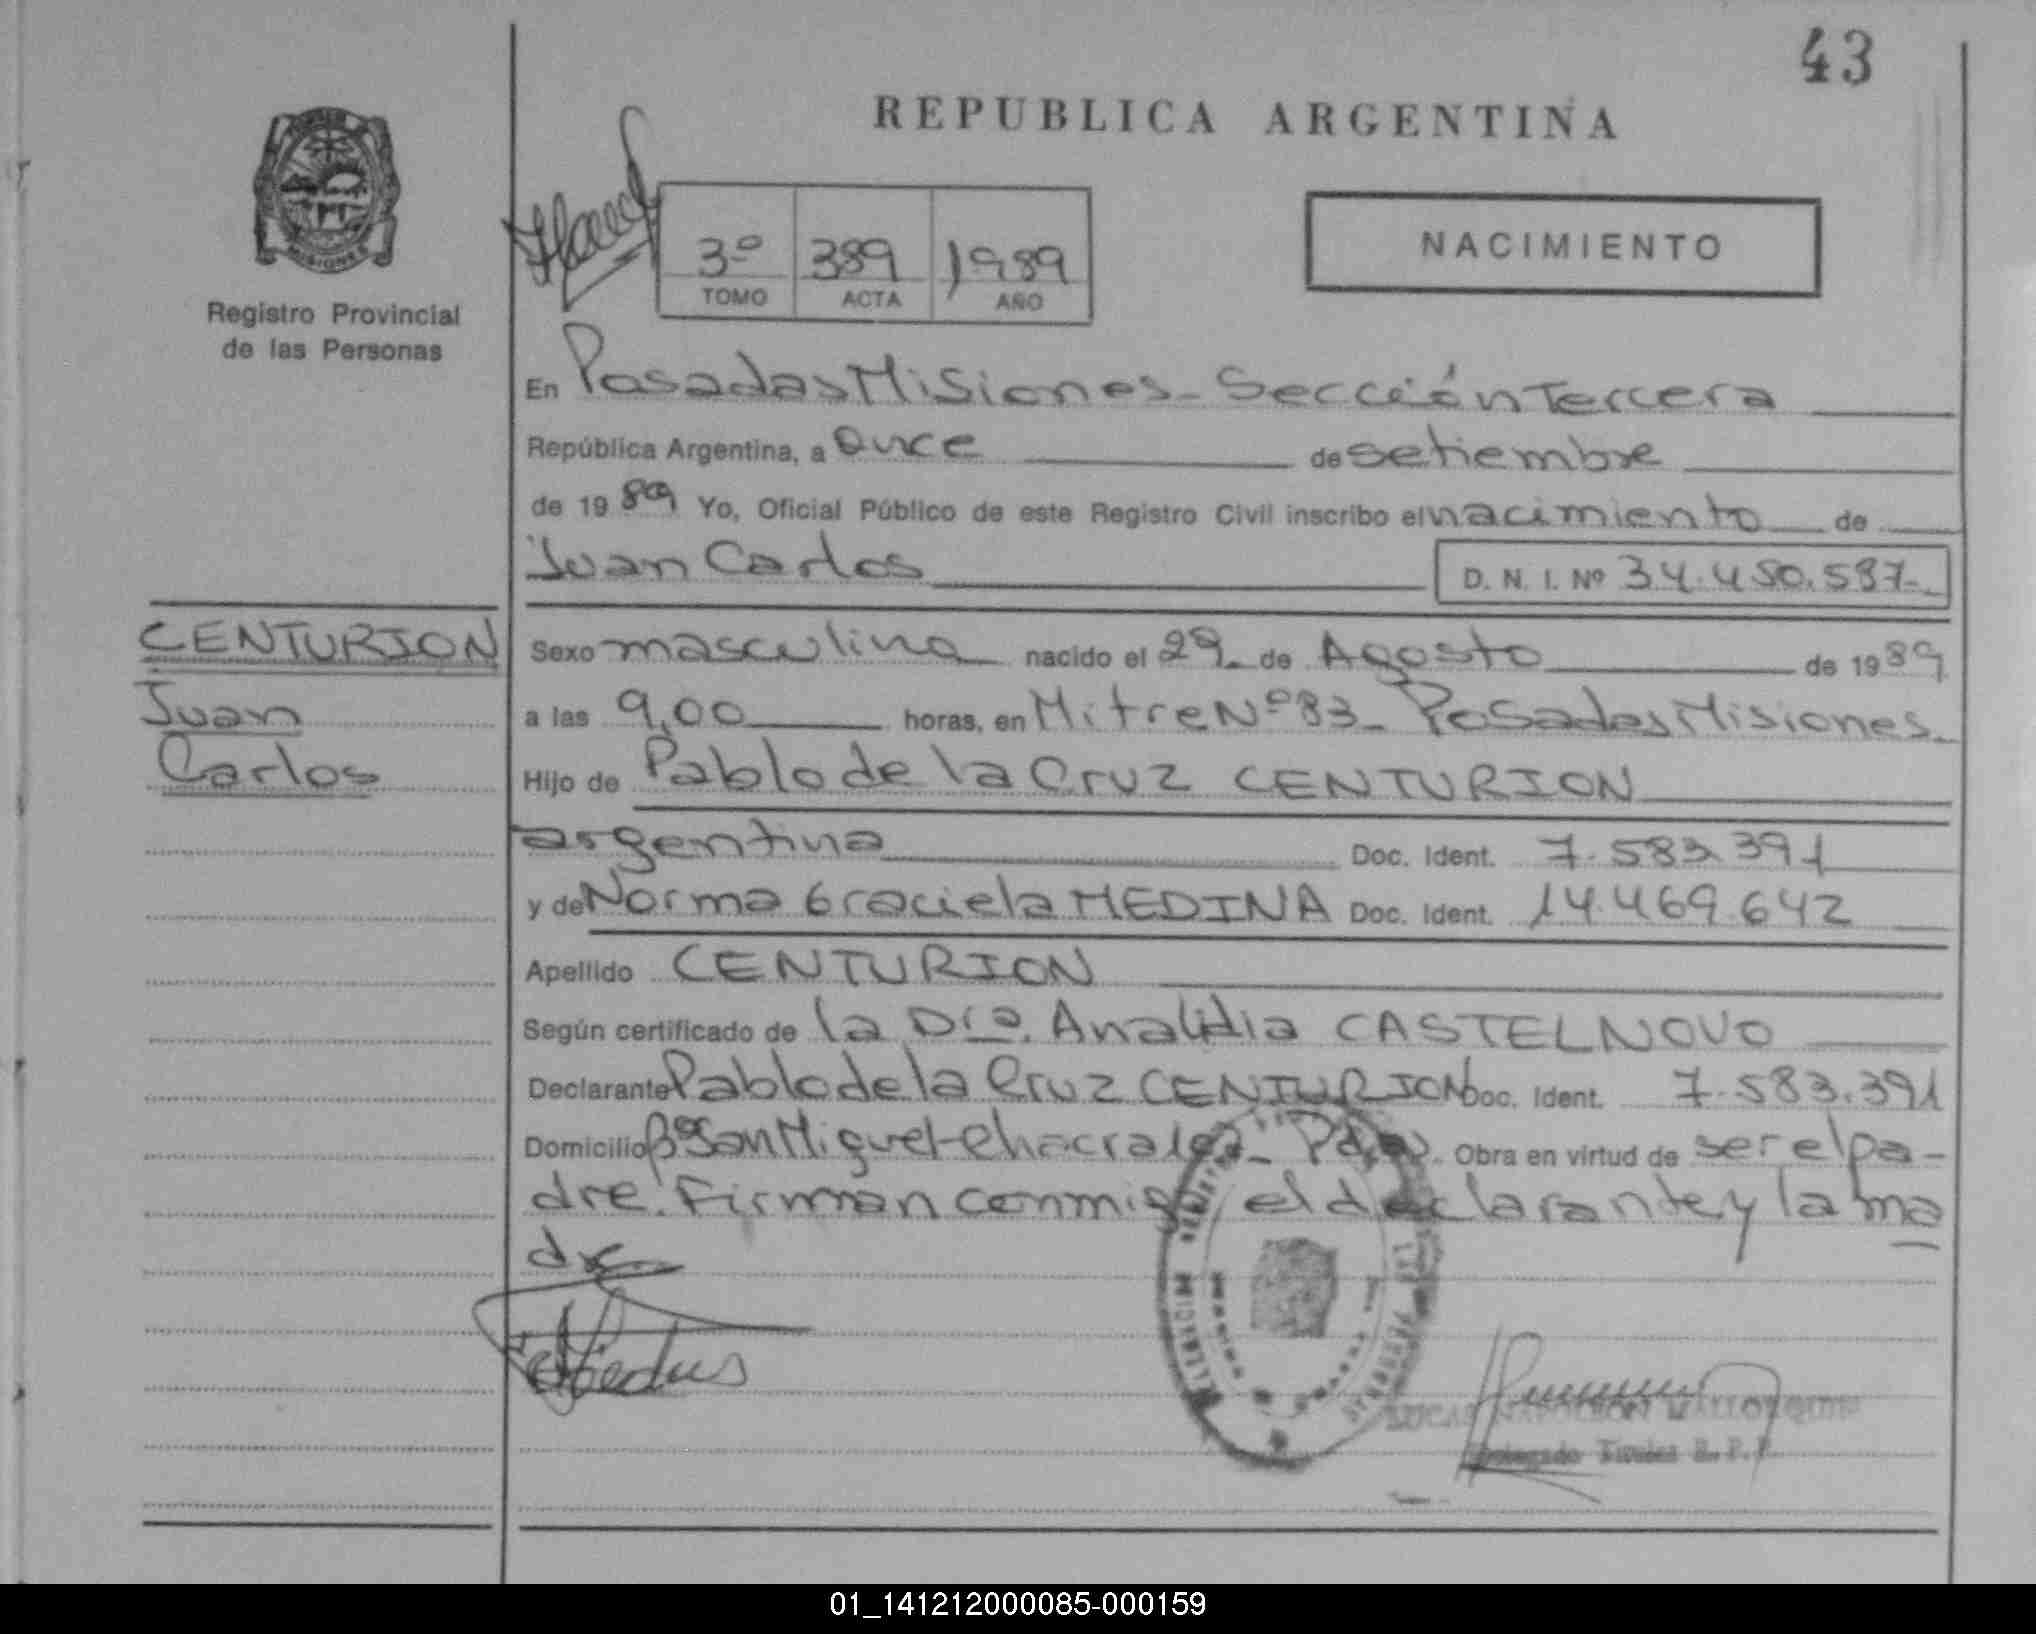 43
REPUBLICA ARGENTINA
NACIMIENTO
3º 389 1989
TOMO ACTA AÑO
MISIONES
Registro Provincial
de las Personas
En Posadas Misiones - Sección Tercera
República Argentina, a Once de setiembre
de 1989 Yo, Oficial Público de este Registro Civil inscribo el nacimiento de
Juan Carlos D. N. I. Nº 34.450.587-
CENTURION
Juan
Carlos
Sexo masculino nacido el 29 de Agosto de 1989
a las 9,00 horas, en Mitre Nº 83 - Posadas Misiones -
Hijo de Pablo de la Cruz CENTURION
argentina Doc. Ident. 7.583.391
y de Norma Graciela MEDINA Doc. Ident. 14.469.642
Apellido CENTURION
Según certificado de la Dra. Analidia CASTELNOVO
Declarante Pablo de la Cruz CENTURION Doc. Ident. 7.583.391
Domicilio Bº San Miguel - Obra en virtud de ser el pa-
dre. Firman conmigo el declarante y la ma
dre
LUCAS NAPOLEON MALLORQUIN
Delegado Titular R. P. P.
01_141212000085-000159